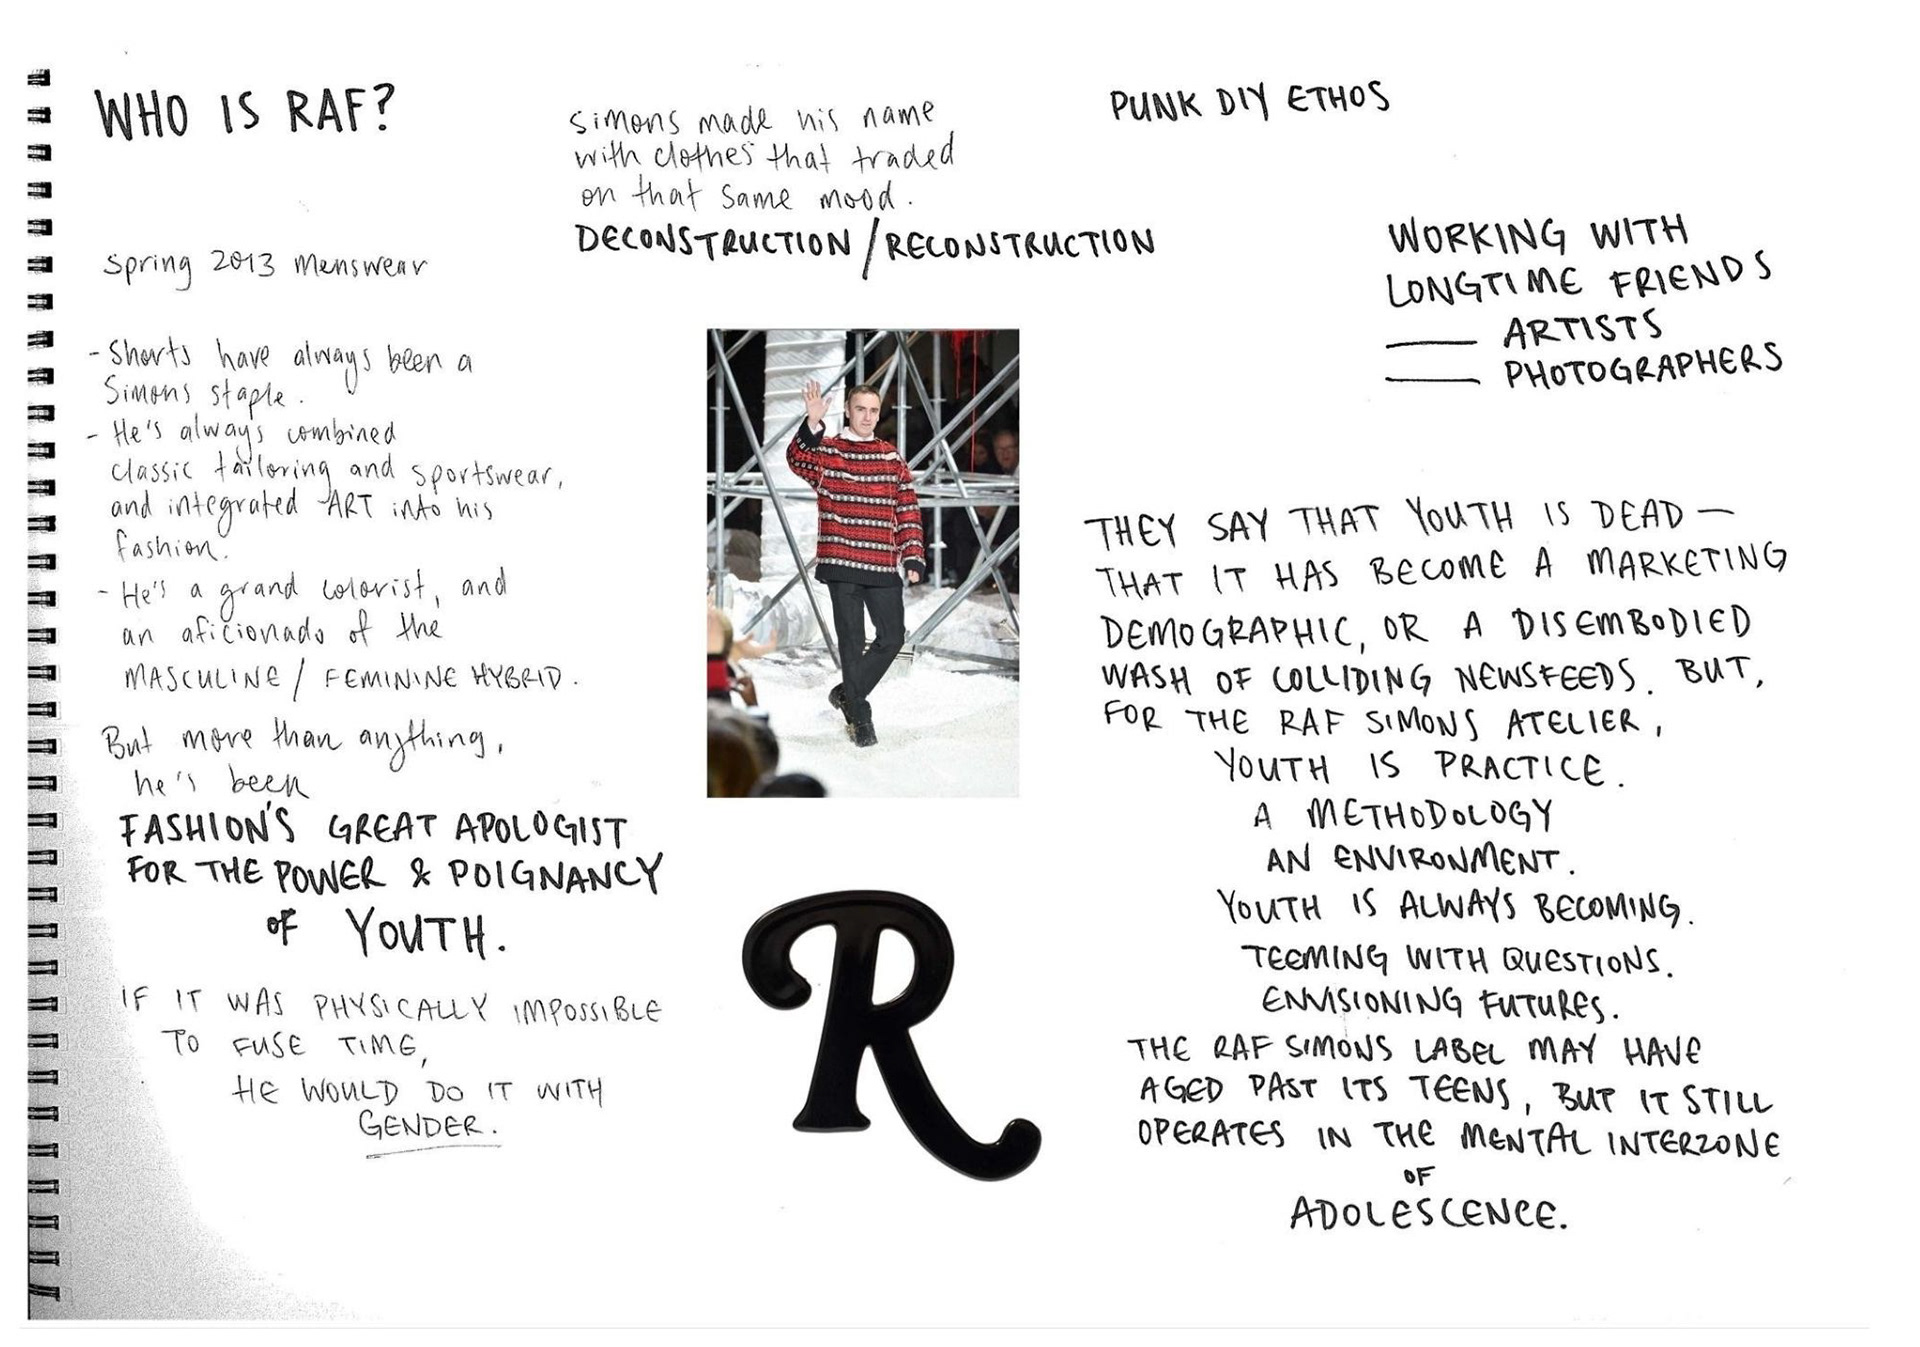 WHO IS RAF?
Spring 2013 Menswear
- Shorts have always been a
Simons staple.
- He's always combined
classic tailoring and sportswear,
and integrated ART into his
fashion.
- He's a grand colorist, and
an aficionado of the
MASCULINE / FEMININE HYBRID.
But more than anything,
he's been
FASHION'S GREAT APOLOGIST
FOR THE POWER & POIGNANCY
OF YOUTH.
IF IT WAS PHYSICALLY IMPOSSIBLE
TO FUSE TIME,
HE WOULD DO IT WITH
GENDER.
Simons made his name
with clothes that traded
on that same mood.
DECONSTRUCTION / RECONSTRUCTION
R
PUNK DIY ETHOS
WORKING WITH
LONGTIME FRIENDS
— ARTISTS
— PHOTOGRAPHERS
THEY SAY THAT YOUTH IS DEAD —
THAT IT HAS BECOME A MARKETING
DEMOGRAPHIC, OR A DISEMBODIED
WASH OF COLLIDING NEWSFEEDS. BUT,
FOR THE RAF SIMONS ATELIER,
YOUTH IS PRACTICE.
A METHODOLOGY
AN ENVIRONMENT.
YOUTH IS ALWAYS BECOMING.
TEEMING WITH QUESTIONS.
ENVISIONING FUTURES.
THE RAF SIMONS LABEL MAY HAVE
AGED PAST ITS TEENS, BUT IT STILL
OPERATES IN THE MENTAL INTERZONE
OF
ADOLESCENCE.